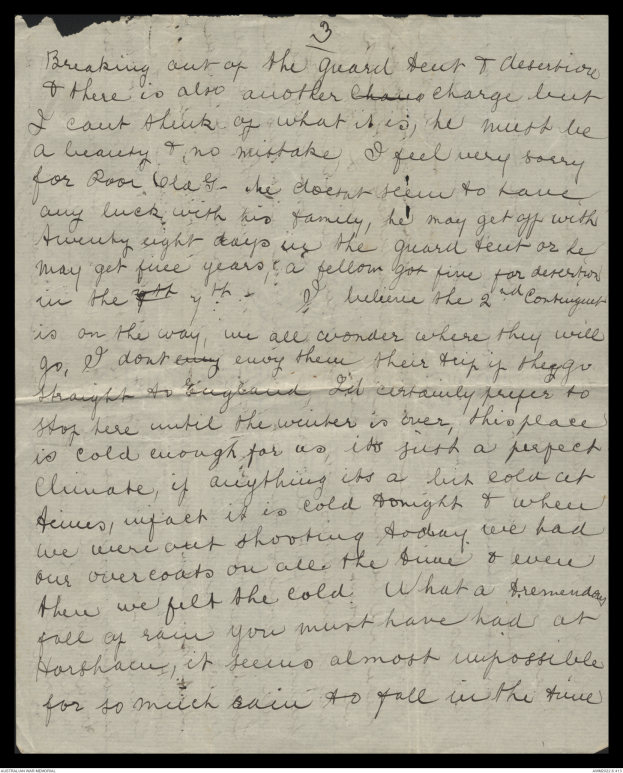 3
Breaking out of the guard tent & desertion
& there is also another charge but
I cant think of what it is, he must be
a beauty &, no mistake, I feel very sorry
for Poor Old G- he doesnt seem to have
any luck with his family, he may get off with
twenty eight days in the guard tent or he
may get five years, a fellow got five for desertion
in the 7th. I believe the 2nd Contingent
is on the way, we all wonder where they will
go, I dont envy them their trip if they go
straight to England, I'd certainly prefer to
stop here until the winter is over, this place
is cold enough for us, its just a perfect
Climate, if anything its a bit cold at
times, infact it is cold tonight & when
we were out shooting today we had
our overcoats on all the time & even
then we felt the cold. What a tremendous
fall of rain you must have had at
Horsham, it seems almost impossible
for so much rain to fall in the time
AUSTRALIAN WAR MEMORIAL